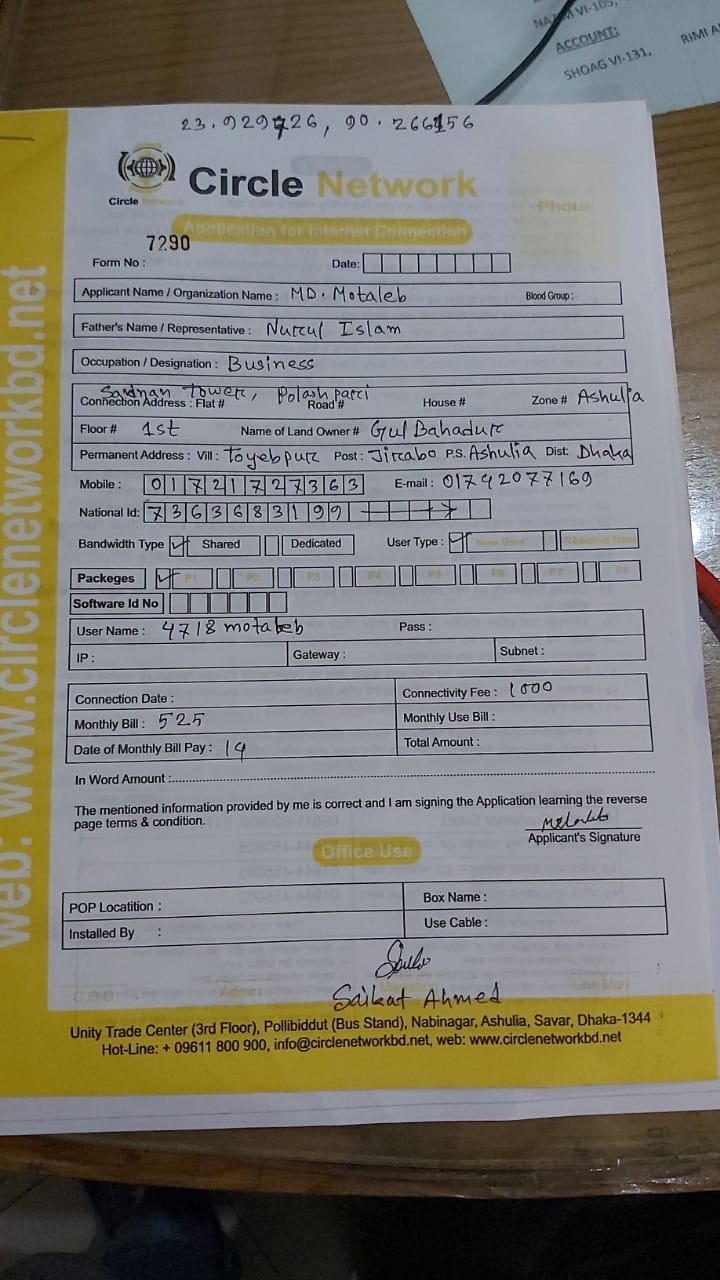 NAZIM VI-105,
ACCOUNT:
SHOAG VI-131,
RIMI A
23.929726, 90.266156
Circle Network
Circle Network
Photo
Application for Internet Connection
7290
Form No :
Date:
Applicant Name / Organization Name : MD. Motaleb Blood Group :
Father's Name / Representative : Nurul Islam
Occupation / Designation : Business
Tower, Polash parri
Connection Address : Flat # Road # House # Zone # Ashulia
Floor # 1st Name of Land Owner # Gul Bahadur
Permanent Address : Vill : Toyebpur Post : Jirabo P.S. Ashulia Dist: Dhaka
Mobile : 01721727363 E-mail : 01742077169
National Id: 7363683199
Bandwidth Type Shared Dedicated User Type : New User Reactive User
Packeges P1 P2 P3 P4 P5 P6 P7 P8
Software Id No
User Name : 4718motaleb Pass :
IP : Gateway : Subnet :
Connection Date : Connectivity Fee : 1000
Monthly Bill : 525 Monthly Use Bill :
Date of Monthly Bill Pay : 14 Total Amount :
In Word Amount :
The mentioned information provided by me is correct and I am signing the Application learning the reverse
page terms & condition.
Applicant's Signature
Office Use
POP Locatition : Box Name :
Installed By : Use Cable :
Saikat Ahmed
C.O.O Admin Line Man
Unity Trade Center (3rd Floor), Pollibiddut (Bus Stand), Nabinagar, Ashulia, Savar, Dhaka-1344
Hot-Line: + 09611 800 900, info@circlenetworkbd.net, web: www.circlenetworkbd.net
web: www.circlenetworkbd.net